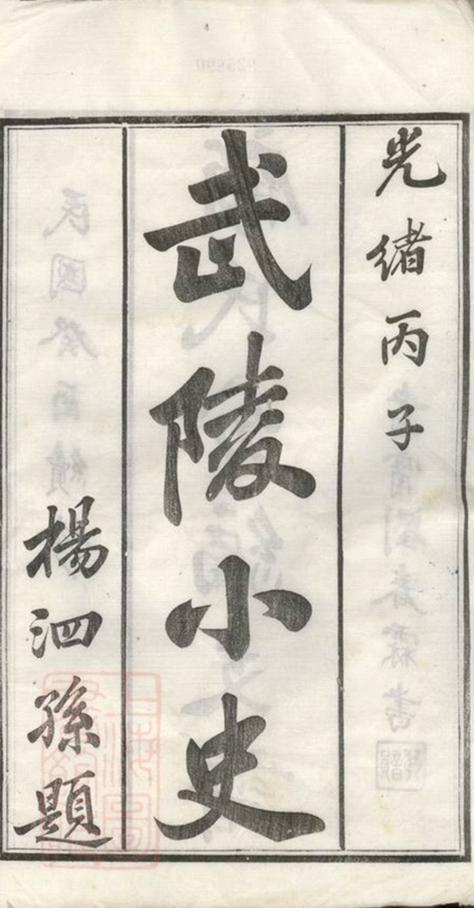 光緒丙子
武陵小史
楊泗孫題